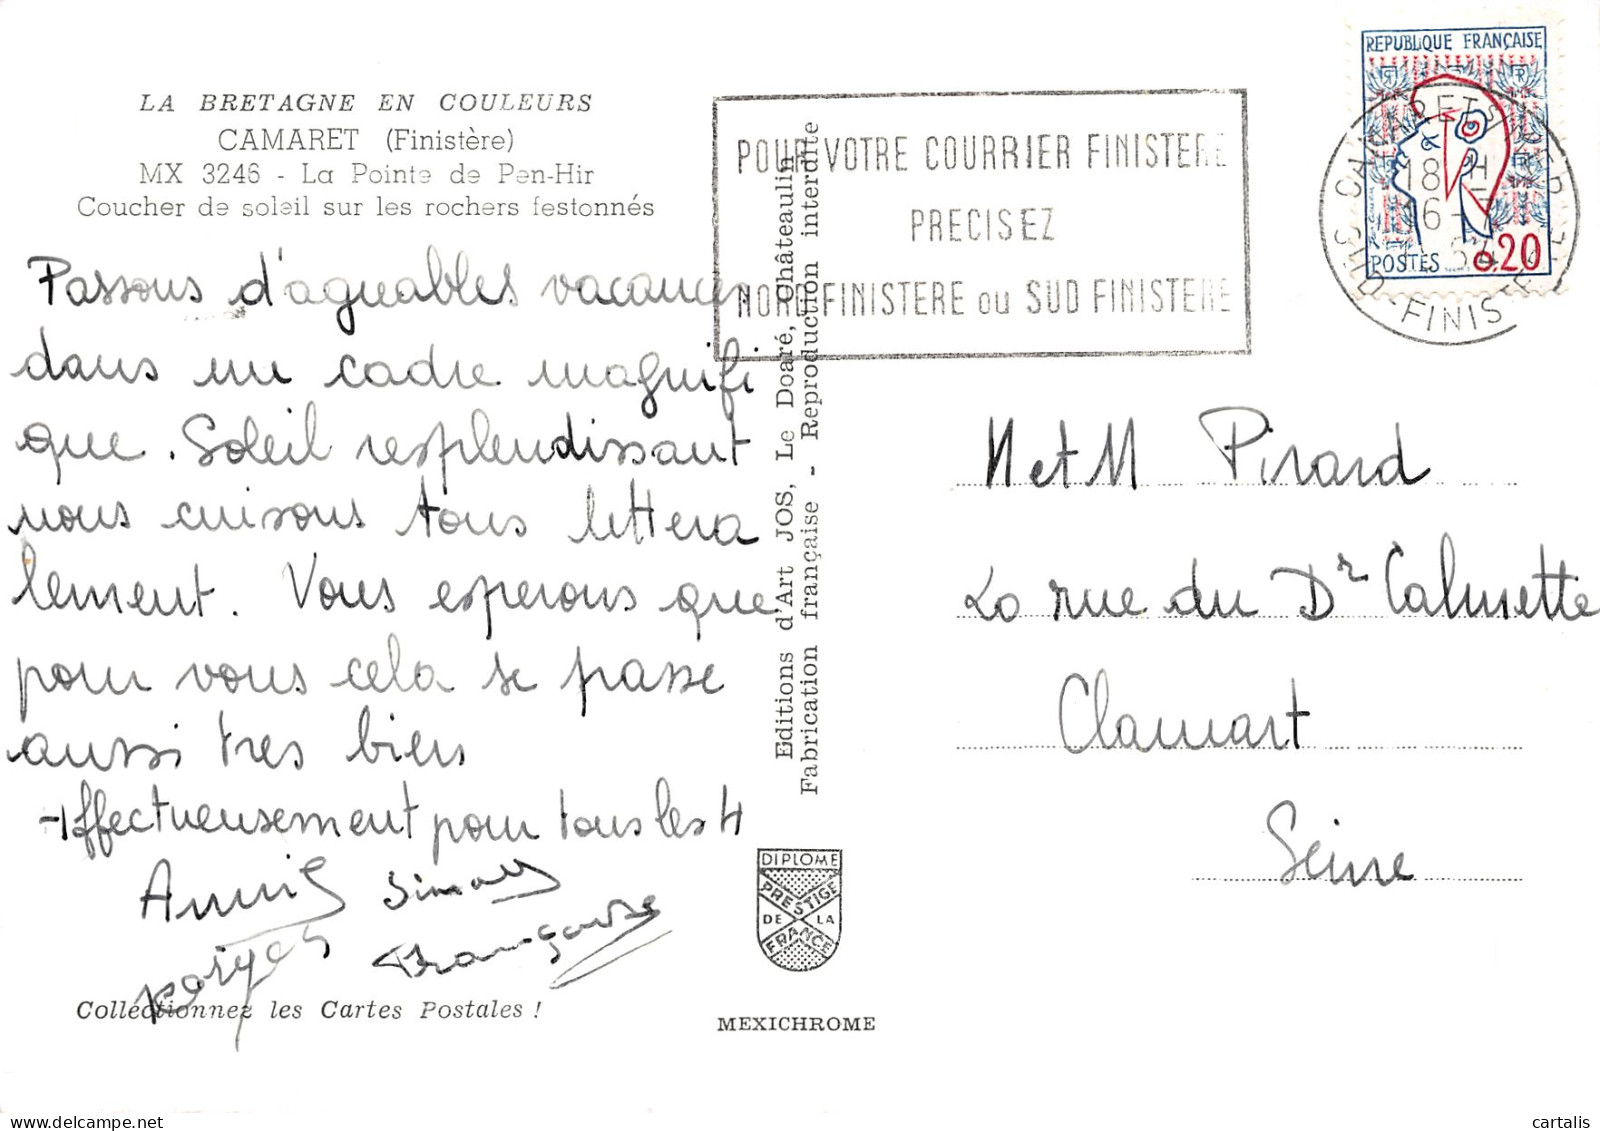 LA BRETAGNE EN COULEURS
CAMARET (Finistère)
MX 3246 - La Pointe de Pen-Hir
Coucher de soleil sur les rochers festonnés
Passons d'agreables vacances
dans un cadre magnifi
que. Soleil resplendissant
nous cuisons tous littera
lement. Vous esperons que
pour vous cela se passe
aussi tres bien
Affectueusement pour tous les 4
Annie Simon
Françoise
Collectionnez les Cartes Postales !
Editions d'Art JOS, Le Doaré, Châteaulin
Fabrication française - Reproduction interdite
DIPLOME
PRESTIGE
DE LA
FRANCE
MEXICHROME
POUR VOTRE COURRIER FINISTERE
PRECISEZ
NORD FINISTERE ou SUD FINISTERE
REPUBLIQUE FRANÇAISE
POSTES 0,20
CAMARET S/ MER
18 H
16 - 7
SUD-FINISTERE
M et M Pirard
20 rue du Dr Calmette
Clamart
Seine
cartalis